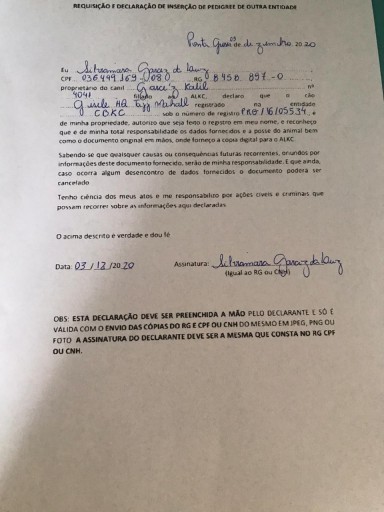 REQUISIÇÃO E DECLARAÇÃO DE INSERÇÃO DE PEDIGREE DE OUTRA ENTIDADE
Ponta 03 de 2020
Eu
CPF RG
proprietário do canil Kalil nº
4041 filiado ao ALKC, declaro que o cão
Gisele Mahall registrado na entidade
CBKC sob o número de registro
de minha propriedade, autorizo que seja feito o registro em meu nome, e reconheço
que é de minha total responsabilidade os dados fornecidos e a posse do animal bem
como o documento original em mãos, onde forneço a cópia digital para o ALKC.
Sabendo-se que quaisquer causas ou consequências futuras recorrentes, oriundos por
informações deste documento fornecido, serão de minha responsabilidade. E que ainda,
caso ocorra algum desencontro de dados fornecidos o documento poderá ser
cancelado
Tenho ciência dos meus atos e me responsabilizo por ações cíveis e criminais que
possam recorrer sobre as informações aqui declaradas
O acima descrito é verdade e dou fé
Data: 03 / 12 /2020 Assinatura:
(Igual ao RG ou CNH)
OBS: ESTA DECLARAÇÃO DEVE SER PREENCHIDA A MÃO PELO DECLARANTE E SÓ É
VÁLIDA COM O ENVIO DAS CÓPIAS DO RG E CPF OU CNH DO MESMO EM JPEG, PNG OU
FOTO A ASSINATURA DO DECLARANTE DEVE SER A MESMA QUE CONSTA NO RG CPF
OU CNH.